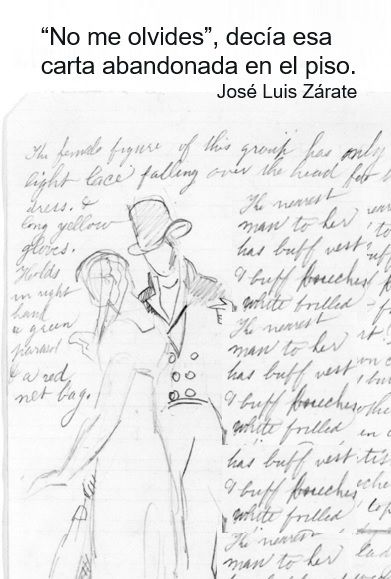 “No me olvides”, decía esa
carta abandonada en el piso.
José Luis Zárate
The female figure of this group has only
light lace falling over the head
dress. &
long yellow
gloves.
Holds
in right
hand
a green
parasol
& a red
net bag.
The nearest
man to her
has buff vest
& buff breeches
white frilled
The nearest
man to her
has buff vest
& buff breeches
white frilled
has buff vest
& buff breeches
white frilled
The nearest
man to her